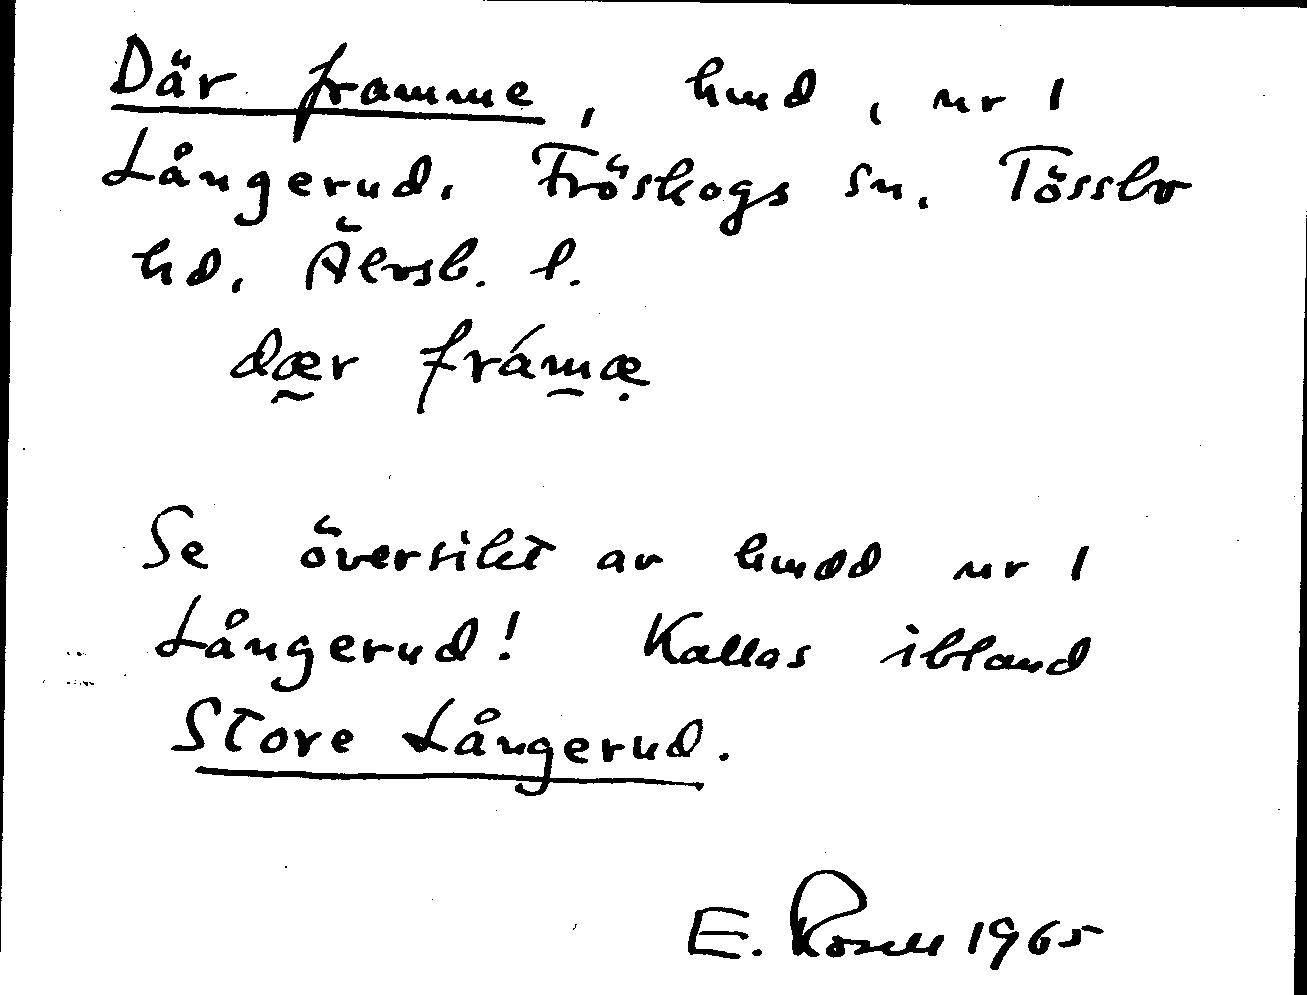 Där framme, hmd, nr 1
Långerud. Fröskogs sn. Tössbo
hd. Älvsb. l.
dær frámæ
Se översikt av hmdd nr 1
Långerud! Kallas ibland
Store Långerud.
E. Rosell 1965